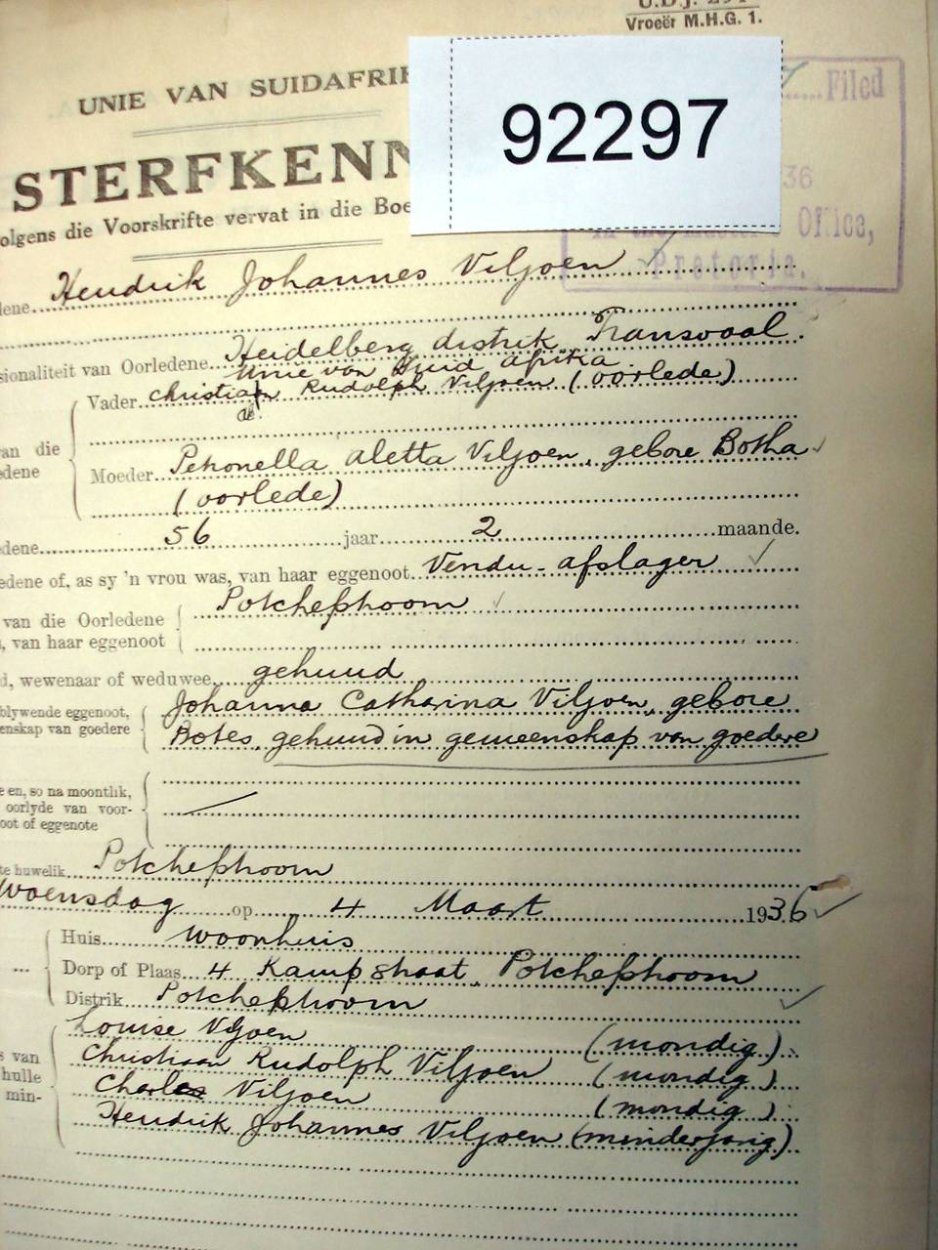 U.D.J. 294
Vroeër M.H.G. 1.
UNIE VAN SUIDAFRI
92297
Filed
36
STERFKENN
olgens die Voorskrifte vervat in die Boe
Office,
Pretoria.
dene Hendrik Johannes Viljoen
sionaliteit van Oorledene Heidelberg distrik Transvaal
Unie van Suid Afrika
Vader Christiaan Rudolph Viljoen (oorlede)
an die
edene
Moeder Petronella Aletta Viljoen, gebore Botha
(oorlede)
edene 56 jaar 2 maande.
edene of, as sy 'n vrou was, van haar eggenoot Vendu-afslager
van die Oorledene Potchefstroom
, van haar eggenoot
d, wewenaar of weduwee gehuud
blywende eggenoot, Johanna Catharina Viljoen, gebore
enskap van goedere Botes, gehuud in gemeenskap van goedere
e en, so na moontlik,
oorlyde van voor-
oot of eggenote
te huwelik Potchefstroom
Woensdag op 4 Maart 1936
Huis woonhuis
Dorp of Plaas 4 Kampstraat, Potchefstroom
Distrik Potchefstroom
Louise Viljoen (mondig)
s van Christiaan Rudolph Viljoen (mondig)
hulle Charles Viljoen (mondig)
min- Hendrik Johannes Viljoen (minderjarig)